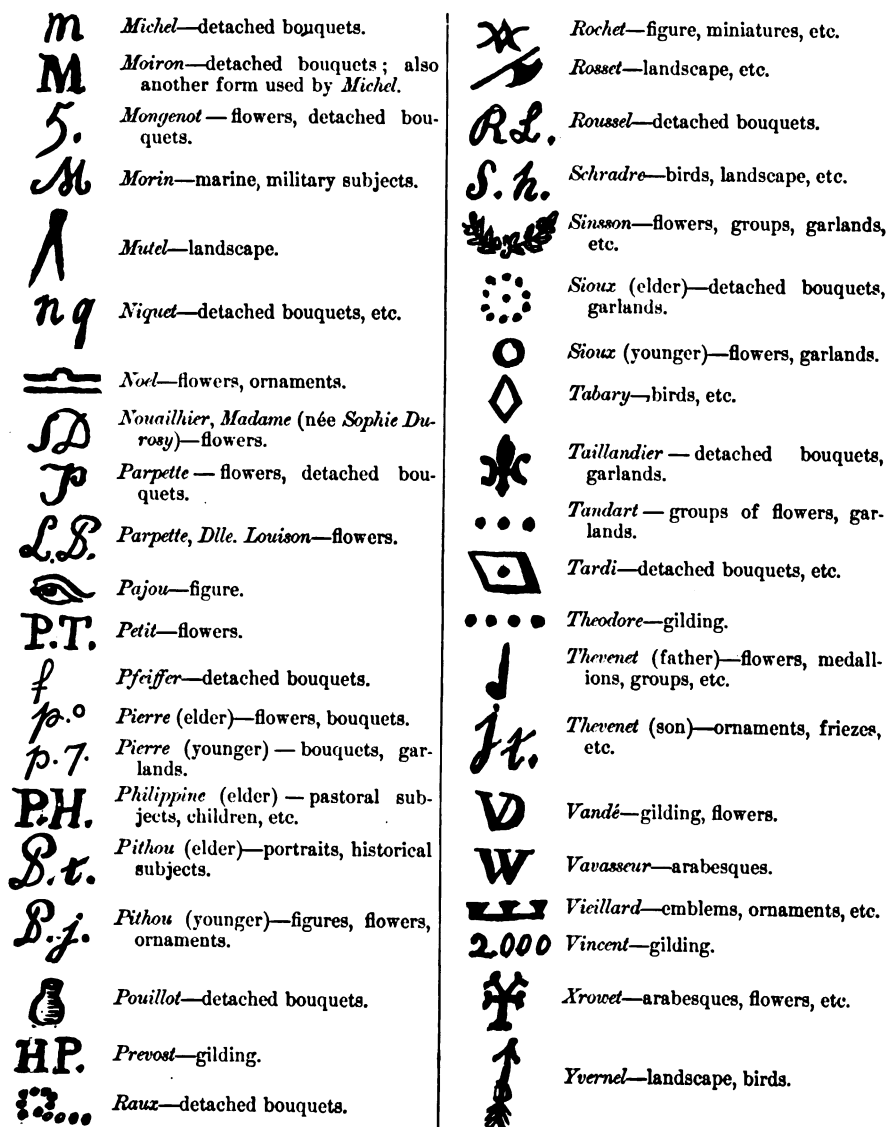 m Michel—detached bouquets.
M Moiron—detached bouquets; also
another form used by Michel.
5. Mongenot—flowers, detached bou-
quets.
M Morin—marine, military subjects.
Mutel—landscape.
n q Niquet—detached bouquets, etc.
Noel—flowers, ornaments.
SD Nouailhier, Madame (née Sophie Du-
rosy)—flowers.
P Parpette—flowers, detached bou-
quets.
L.B. Parpette, Dlle. Louison—flowers.
Pajou—figure.
P.T. Petit—flowers.
f Pfeiffer—detached bouquets.
p.o Pierre (elder)—flowers, bouquets.
p.7. Pierre (younger)—bouquets, gar-
lands.
P.H. Philippine (elder)—pastoral sub-
jects, children, etc.
P.t. Pithou (elder)—portraits, historical
subjects.
P.j. Pithou (younger)—figures, flowers,
ornaments.
Pouillot—detached bouquets.
HP. Prevost—gilding.
Raux—detached bouquets.
Rochet—figure, miniatures, etc.
Rosset—landscape, etc.
RL. Roussel—detached bouquets.
S.h. Schradre—birds, landscape, etc.
Sinsson—flowers, groups, garlands,
etc.
Sioux (elder)—detached bouquets,
garlands.
Sioux (younger)—flowers, garlands.
Tabary—birds, etc.
Taillandier—detached bouquets,
garlands.
Tandart—groups of flowers, gar-
lands.
Tardi—detached bouquets, etc.
Theodore—gilding.
Thevenet (father)—flowers, medall-
ions, groups, etc.
jt. Thevenet (son)—ornaments, friezes,
etc.
VD Vandé—gilding, flowers.
W Vavasseur—arabesques.
Vieillard—emblems, ornaments, etc.
2000 Vincent—gilding.
Xrowet—arabesques, flowers, etc.
Yvernel—landscape, birds.